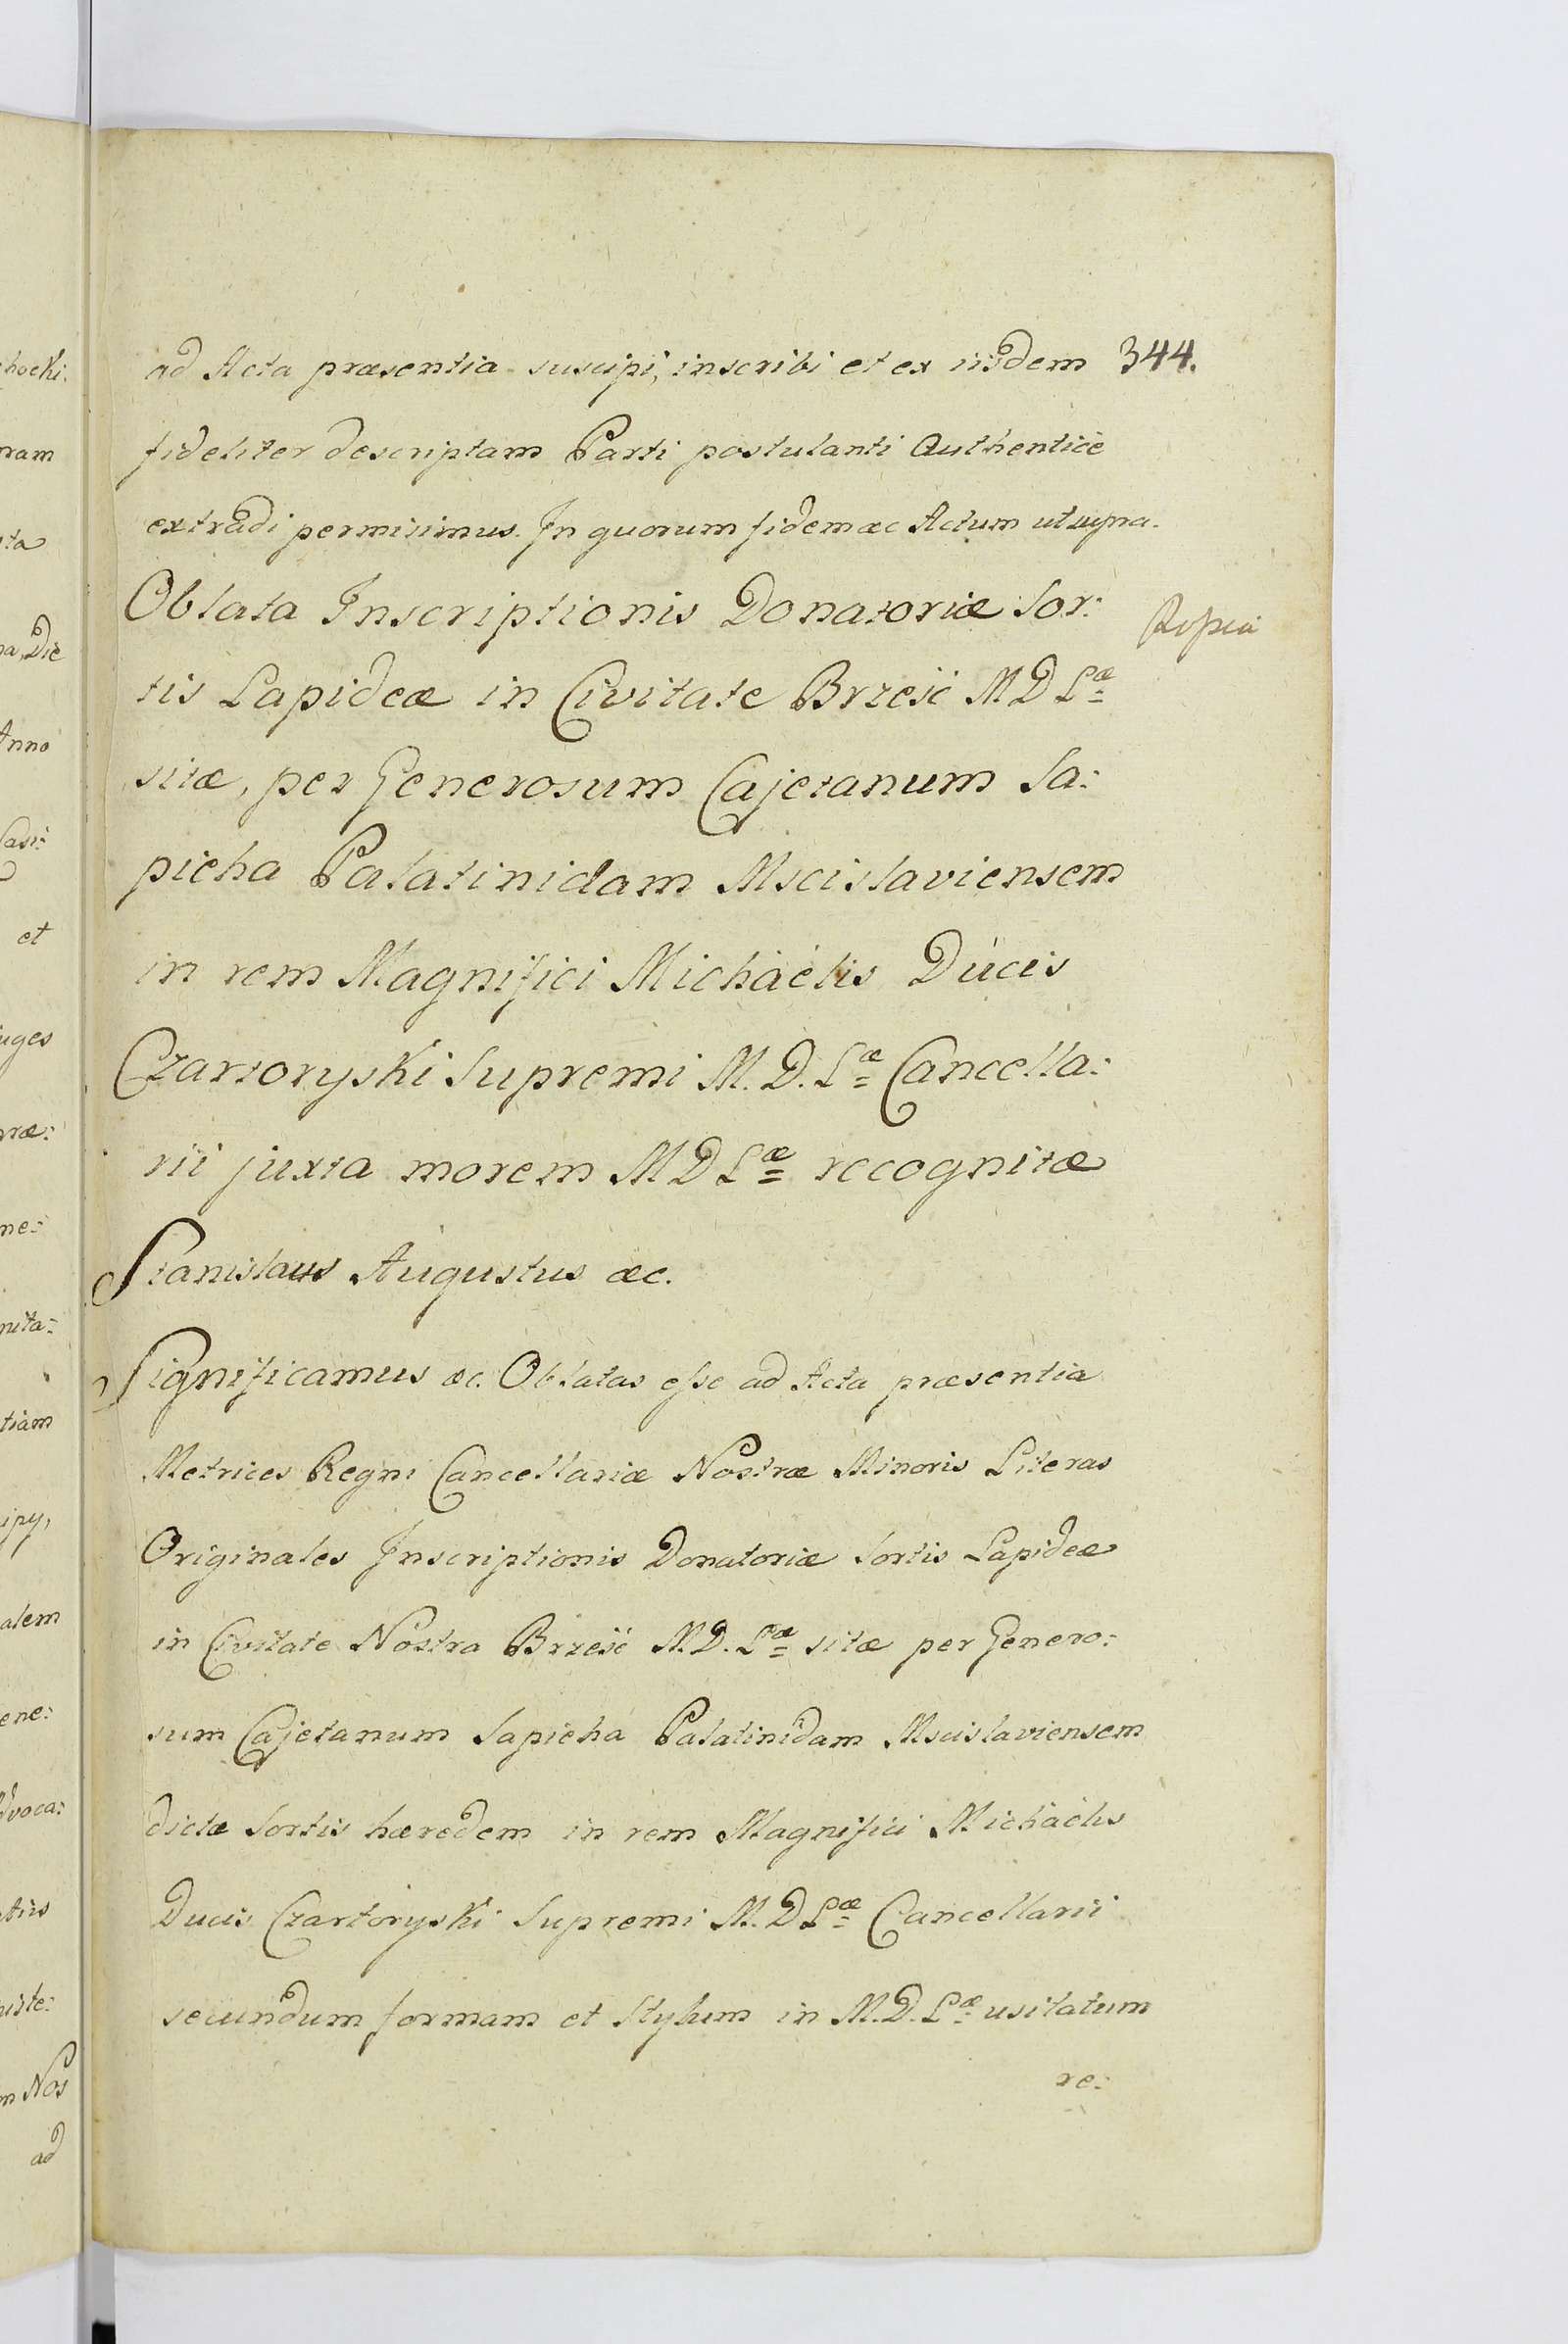 ad Acta præsentia suscipi, inscribi et ex iisdem 344.
fideliter descriptam Parti postulanti Authenticè
extradi permisimus. In quorum fidem æc Actum ut supra.
Oblata Inscriptionis Donatoriæ Sor:
tis Lapideæ in Civitate Brześć M D Læ
sitæ, per Generosum Cajetanum Sa:
pieha Palatinidam Mscislaviensem
in rem Magnifici Michaëlis Ducis
Czartoryski Supremi M. D. Læ Cancella:
rii juxta morem M D Læ recognitæ
Stanislaus Augustus æc.
Significamus æc. Oblatas esse ad Acta præsentia
Metrices Regni Cancellariæ Nostræ Minoris Literas
Originales Inscriptionis Donatoriæ Sortis Lapideæ
in Civitate Nostra Brześć M. D. Læ sitæ per Genero:
sum Cajetanum Sapieha Palatinidam Mscislaviensem
dictæ Sortis hæredem in rem Magnifici Michaëlis
Ducis Czartoryski Supremi M. D Læ Cancellarii
secundum formam et Stylum in M. D. Læ usitatum
re:
hocki.
nam
ta
na, Die
Anno
et
uges
præ:
ne:
nita:
tiam
ipy,
alem
ene:
dvoca:
iste:
m Nos
ad